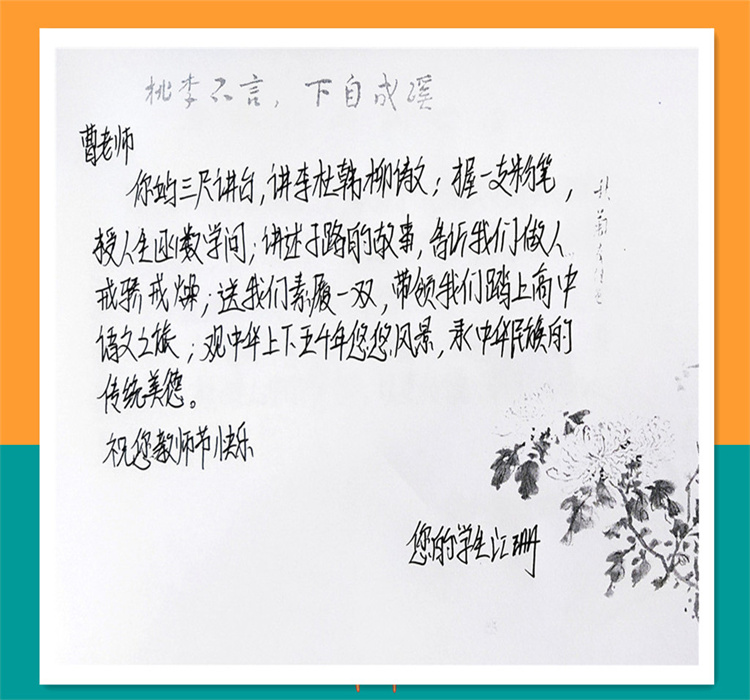 桃李不言，下自成蹊
曹老师
你站三尺讲台，讲李杜韩柳诗文；握一支粉笔，
授人生函数学问；讲述子路的故事，告诉我们做人
戒骄戒燥；送我们素履一双，带领我们踏上高中
语文之旅；观中华上下五千年悠悠风景，承中华民族的
传统美德。
祝您教师节快乐
您的学生江珊